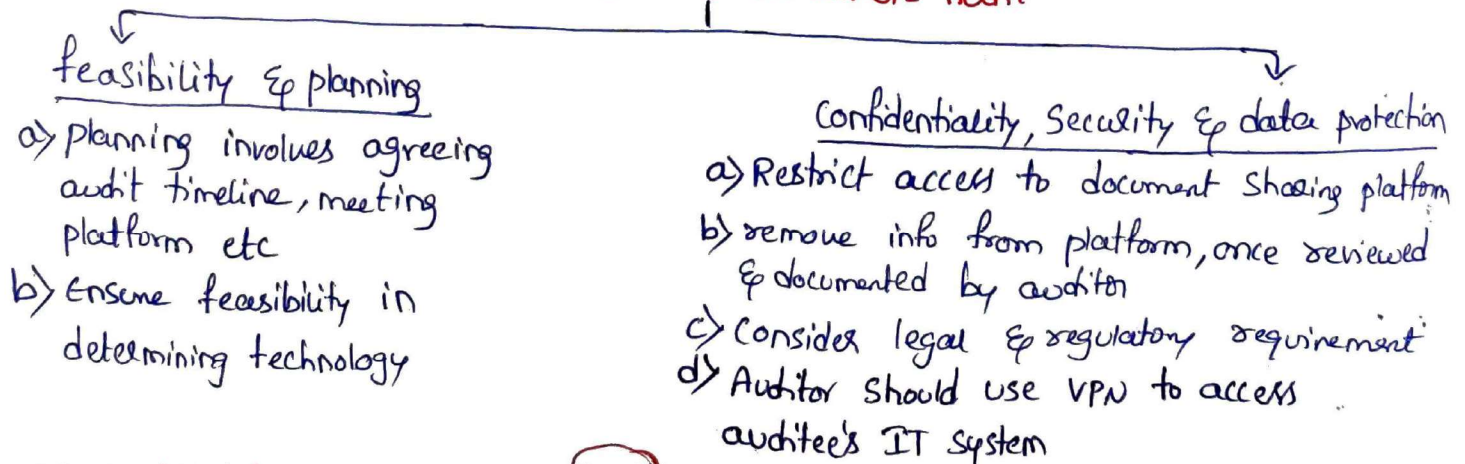 feasibility & planning
a) Planning involves agreeing
audit timeline, meeting
platform etc
b) Ensure feasibility in
determining technology
Confidentiality, Security & data protection
a) Restrict access to document Sharing platform
b) remove info from platform, once reviewed
& documented by auditor
c) Consider legal & regulatory requirement
d) Auditor should use VPN to access
auditee's IT system